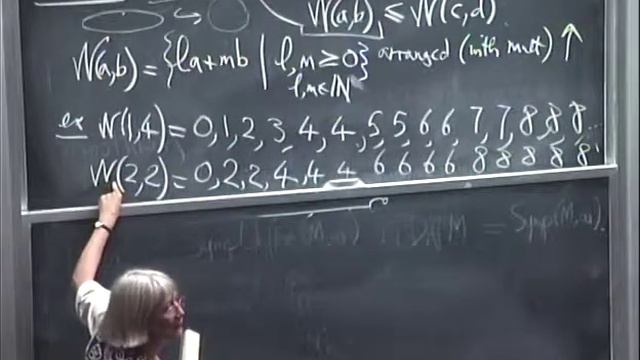 N(a,b) ≤ N(c,d)
N(a,b) = {la+mb | l,m ≥ 0} arranged (with mult) ↑
l,m∈ℕ
ex N(1,4) = 0,1,2,3,4,4,5,5,6,6,7,7,8,8,8...
N(2,2) = 0,2,2,4,4,4,6,6,6,6,8,8,8,8,8..
M = Symp(M,ω).